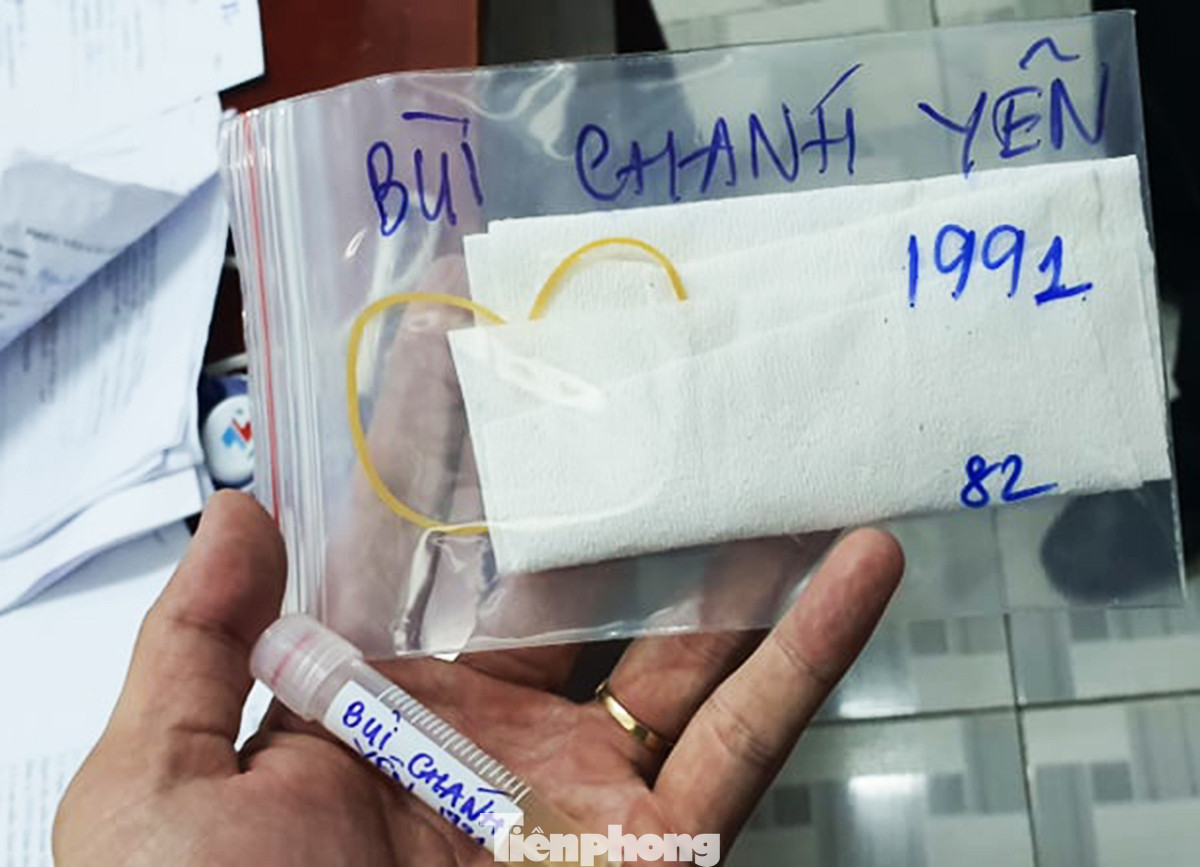 BÙI CHANH YẾN
1991
82
BÙI CHÁNH
YẾN 1991
Tiênphong